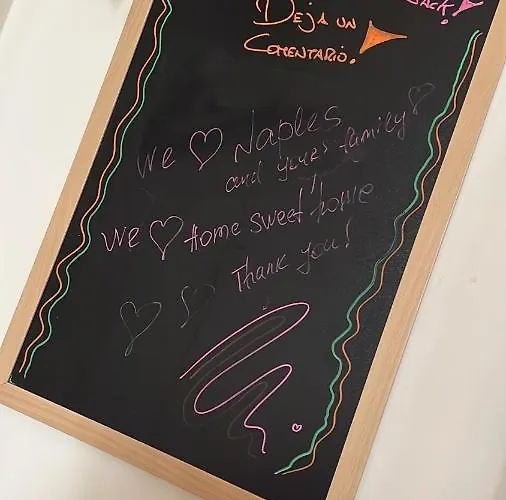 BACK!
DEJA UN
COMENTARIO.
We ♡ Naples
and yours family ♡
We ♡ Home sweet home
Thank you!